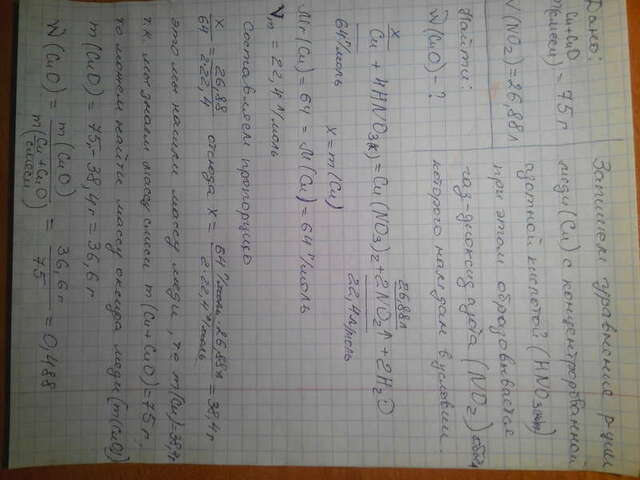 Дано:
m(смеси Cu+CuO) = 75 г
V(NO2) = 26,88 л
Найти:
W(CuO) - ?
Запишем уравнение р-ции
меди (Cu) с концентрированной
азотной кислотой (HNO3
при этом образовывается
газ-диоксид азота (NO2)
которого мы дан в условии.
x 26,88 л
Cu + 4HNO3(к) = Cu(NO3)2 + 2NO2↑ + 2H2O
64 г/моль 22,4 л/моль
x = m(Cu)
Mr(Cu) = 64 = M(Cu) = 64 г/моль
Vm = 22,4 л/моль
Составляем пропорцию
x/64 = 26,88/2·22,4 отсюда x = 64 г/моль·26,88 л/2·22,4 л/моль = 38,4 г
это мы нашли массу меди, то m(Cu)=38,4г
т.к. мы знаем массу смеси m(Cu+CuO)=75 г,
то можем найти массу оксида меди [m(CuO)]
m(CuO) = 75,-38,4 г = 36,6 г
W(CuO) = m(CuO)/m(Cu+CuO)(смеси) = 36,6 г/75 = 0,488